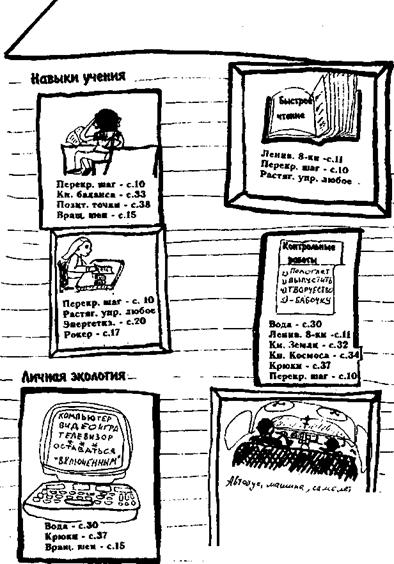 Навыки учения
Быстрое
чтение
Ленив. 8-ки -с.11
Перекр. шаг - с.10
Растяг. упр. любое
Перекр. шаг - с.10
Кн. баланса - с.33
Позит. точки - с.38
Вращ. шеи - с.15
Перекр. шаг - с. 10
Растяг. упр. любое
Энергетиз. - с.20
Рокер - с.17
Контрольные
работы
1) Помогает
2) выпустить
3) творчество
4) - бабочку
Вода - с.30
Ленив. 8-ки -с.11
Кн. Земли - с.32
Кн. Космоса - с.34
Крюки - с.37
Перекр. шаг - с.10
Личная экология
КОМПЬЮТЕР
ВИДЕОИГРА
ТЕЛЕВИЗОР
ОСТАВАТЬСЯ
"ВКЛЮЧЕННЫМ"
Вода - с.30
Крюки - с.37
Вращ. шеи - с.15
Автобус, машина, самолет